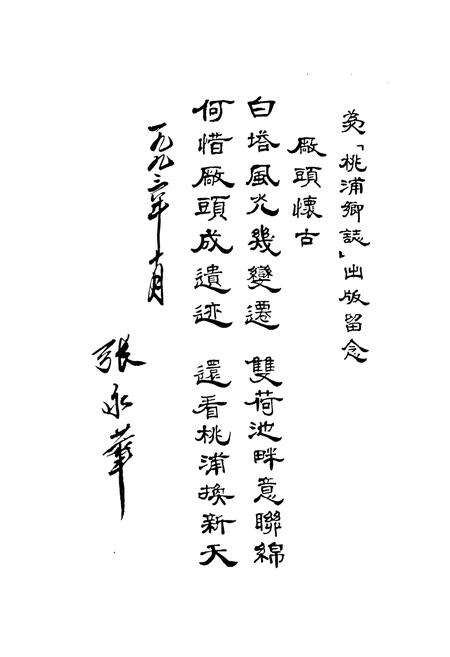 為「桃浦鄉誌」出版留念
廠頭懷古
白塔風光幾變遷 雙荷池畔意聯綿
何惜廠頭成遺迹 還看桃浦換新天
一九九三年十月
張永華